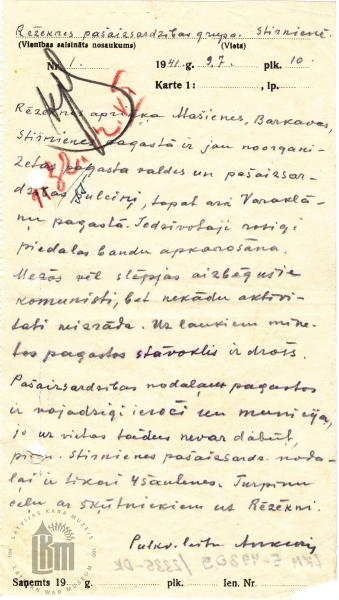 Rēzeknes pašaizsardzības grupa. Stirnienē.
(Vienības saīsināts nosaukums) (Vieta)
Nr. 1. 1941. 9.7. plk. 10.
Karte 1: , lp.
Rēzeknes apriņķa Mašienes, Barkavas,
Stirnienes pagastā ir jau noorgani-
zetas pagasta valdes un pašaizsar-
dzības pulciņi, tapat arī Varaklā-
ņu pagastā. Iedzīvotāji rosīgi
piedalas bandu apkarošāna
Mežos vēl slēpjas aizbēgušie
komunisti, bet nekādu aktīvi-
tati neizrāda. Uz laukiem minē-
tos pagastos stāvoklis ir drošs.
Pašaizsardzības nodaļaur pagastos
ir vajadzīgi ieroči un municija,
jo uz vietas tādus nevar dabūt,
piem. Stirnienes pašaizsardz. noda-
ļai ir tikai 4 šautenes. Turpinu
ceļu ar skūtniekiem uz Rēzekni.
Pulkv. leitn.
LATVIJAS KARA MUZEJS
LKM
LATVIAN WAR MUSEUM
LKM 5-49305/2335-DK
Saņemts 19 g. plk. Ien. Nr.